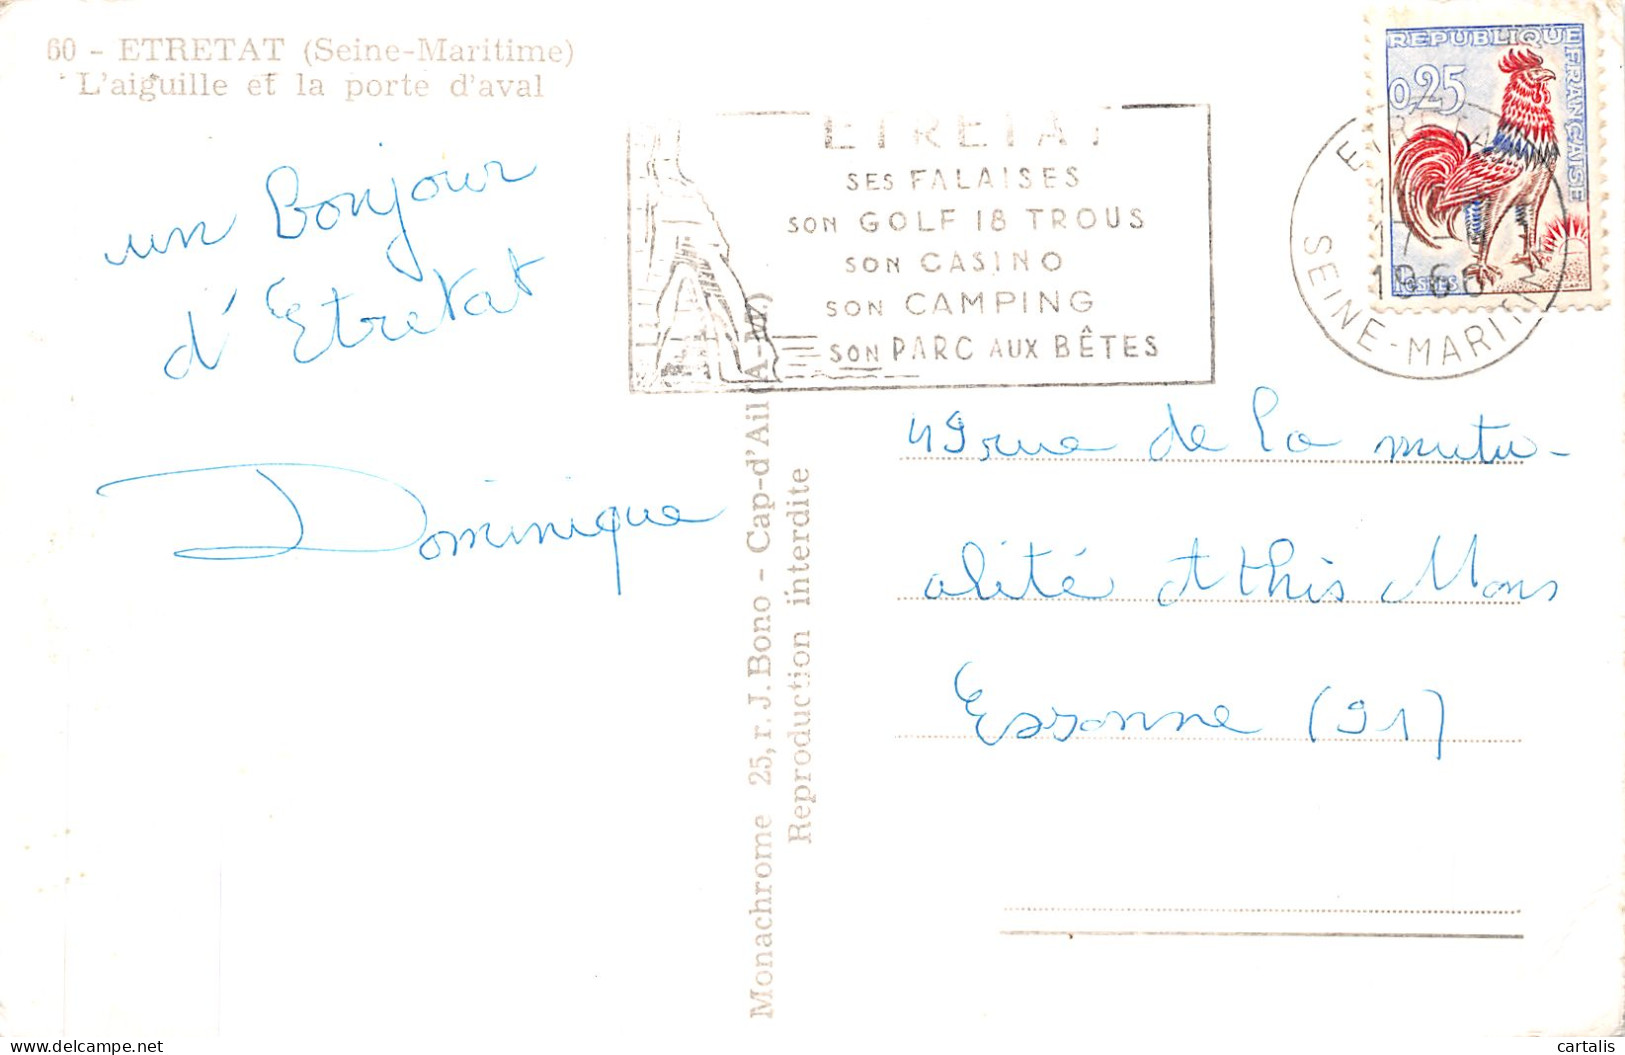 60 - ETRETAT (Seine-Maritime)
L'aiguille et la porte d'aval
un Bonjour
d'Etretat
Dominique
ETRETAT
SES FALAISES
SON GOLF 18 TROUS
SON CASINO
SON CAMPING
SON PARC AUX BÊTES
REPUBLIQUE
FRANÇAISE
0,25
POSTES
17 -
1966
SEINE-MARITIME
Monachrome 25, r. J. Bono - Cap-d'Ail (A-M.)
Reproduction interdite
49 rue de la mutu-
alité Athis Mons
Essonne (91)
cartalis